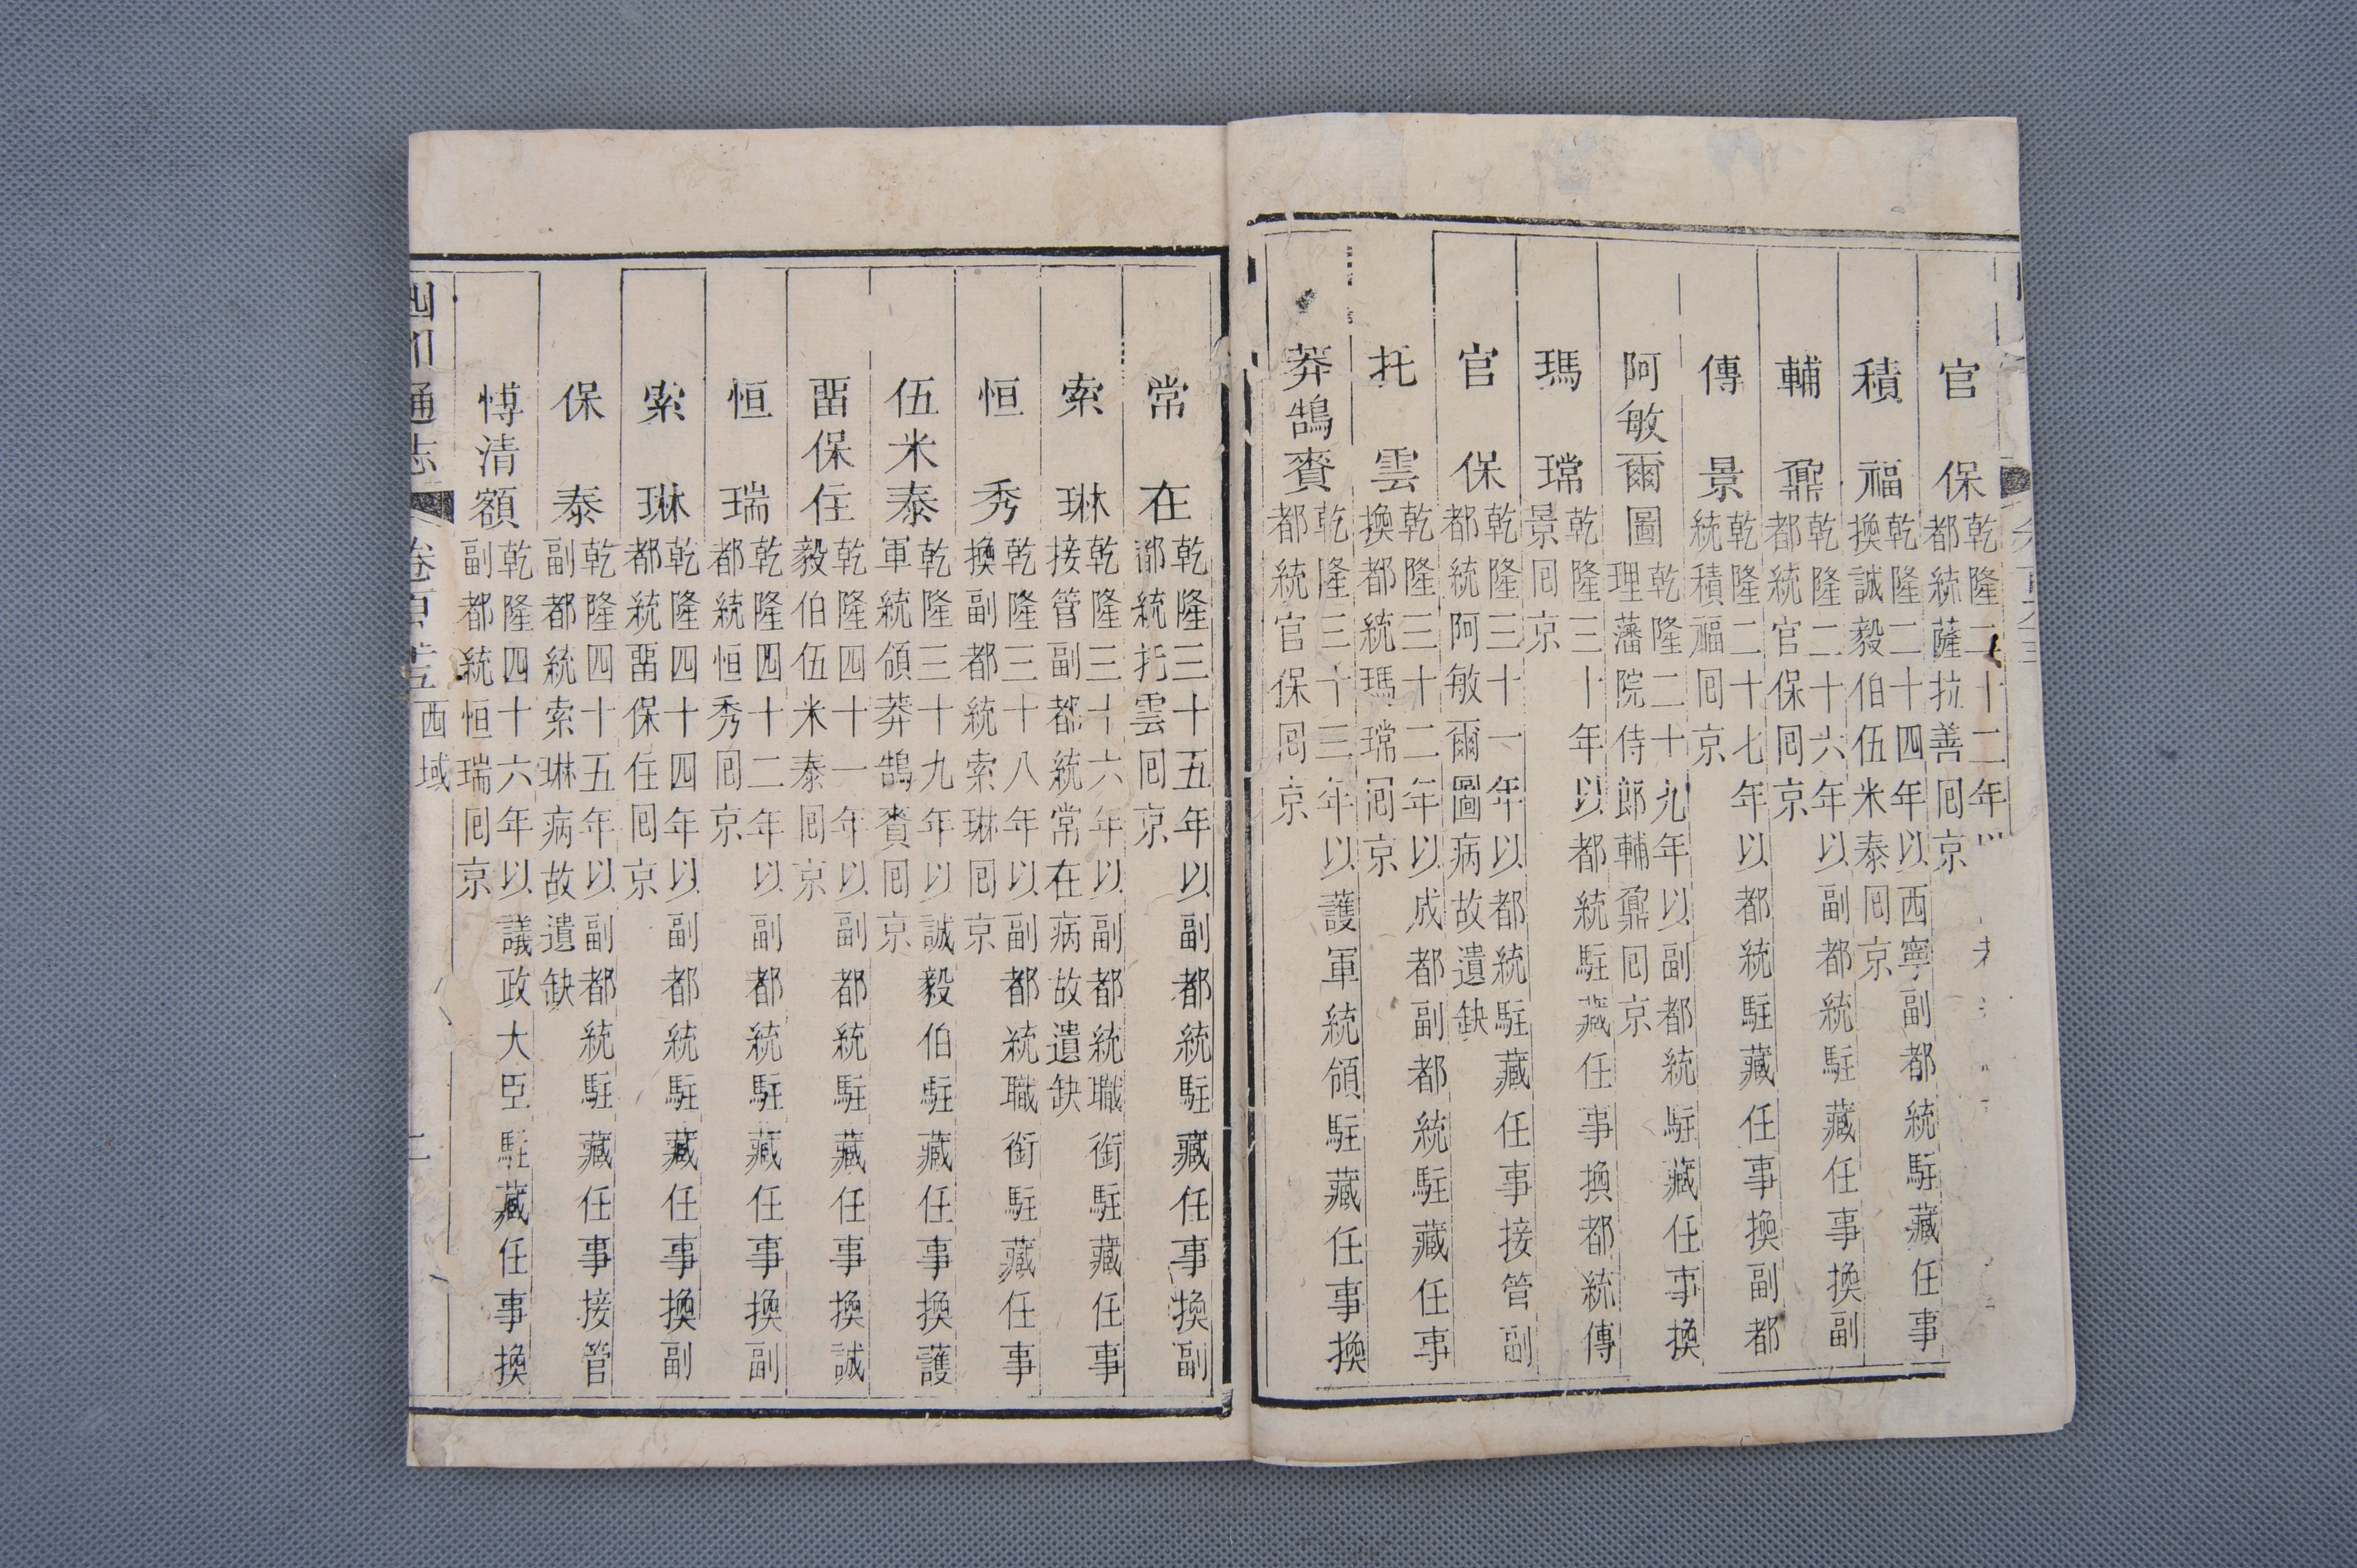 官保乾隆二十二年以
都統薩拉善囘京
積福乾隆二十四年以西寧副都統駐藏任事
換誠毅伯伍米泰囘京
輔鼐乾隆二十六年以副都統駐藏任事換副
都統官保囘京
傅景乾隆二十七年以都統駐藏任事換副都
統積福囘京
阿敏爾圖乾隆二十九年以副都統駐藏任事換
理藩院侍郎輔鼐囘京
瑪瑺乾隆三十年以都統駐藏任事換都統傅
景囘京
官保乾隆三十一年以都統駐藏任事接管副
都統阿敏爾圖病故遺缺
托雲乾隆三十二年以成都副都統駐藏任事
換都統瑪瑺囘京
莽鵠賚乾隆三十三年以護軍統領駐藏任事換
都統官保囘京
常在乾隆三十五年以副都統駐藏任事換副
都統托雲囘京
索琳乾隆三十六年以副都統職銜駐藏任事
接管副都統常在病故遺缺
恒秀乾隆三十八年以副都統職銜駐藏任事
換副都統索琳囘京
伍米泰乾隆三十九年以誠毅伯駐藏任事換護
軍統領莽鵠賚囘京
畱保住乾隆四十一年以副都統駐藏任事換誠
毅伯伍米泰囘京
恒瑞乾隆四十二年以副都統駐藏任事換副
都統恒秀囘京
索琳乾隆四十四年以副都統駐藏任事換副
都統畱保住囘京
保泰乾隆四十五年以副都統駐藏任事接管
副都統索琳病故遺缺
博清額乾隆四十六年以議政大臣駐藏任事換
副都統恒瑞囘京
四川通志 卷百 西域